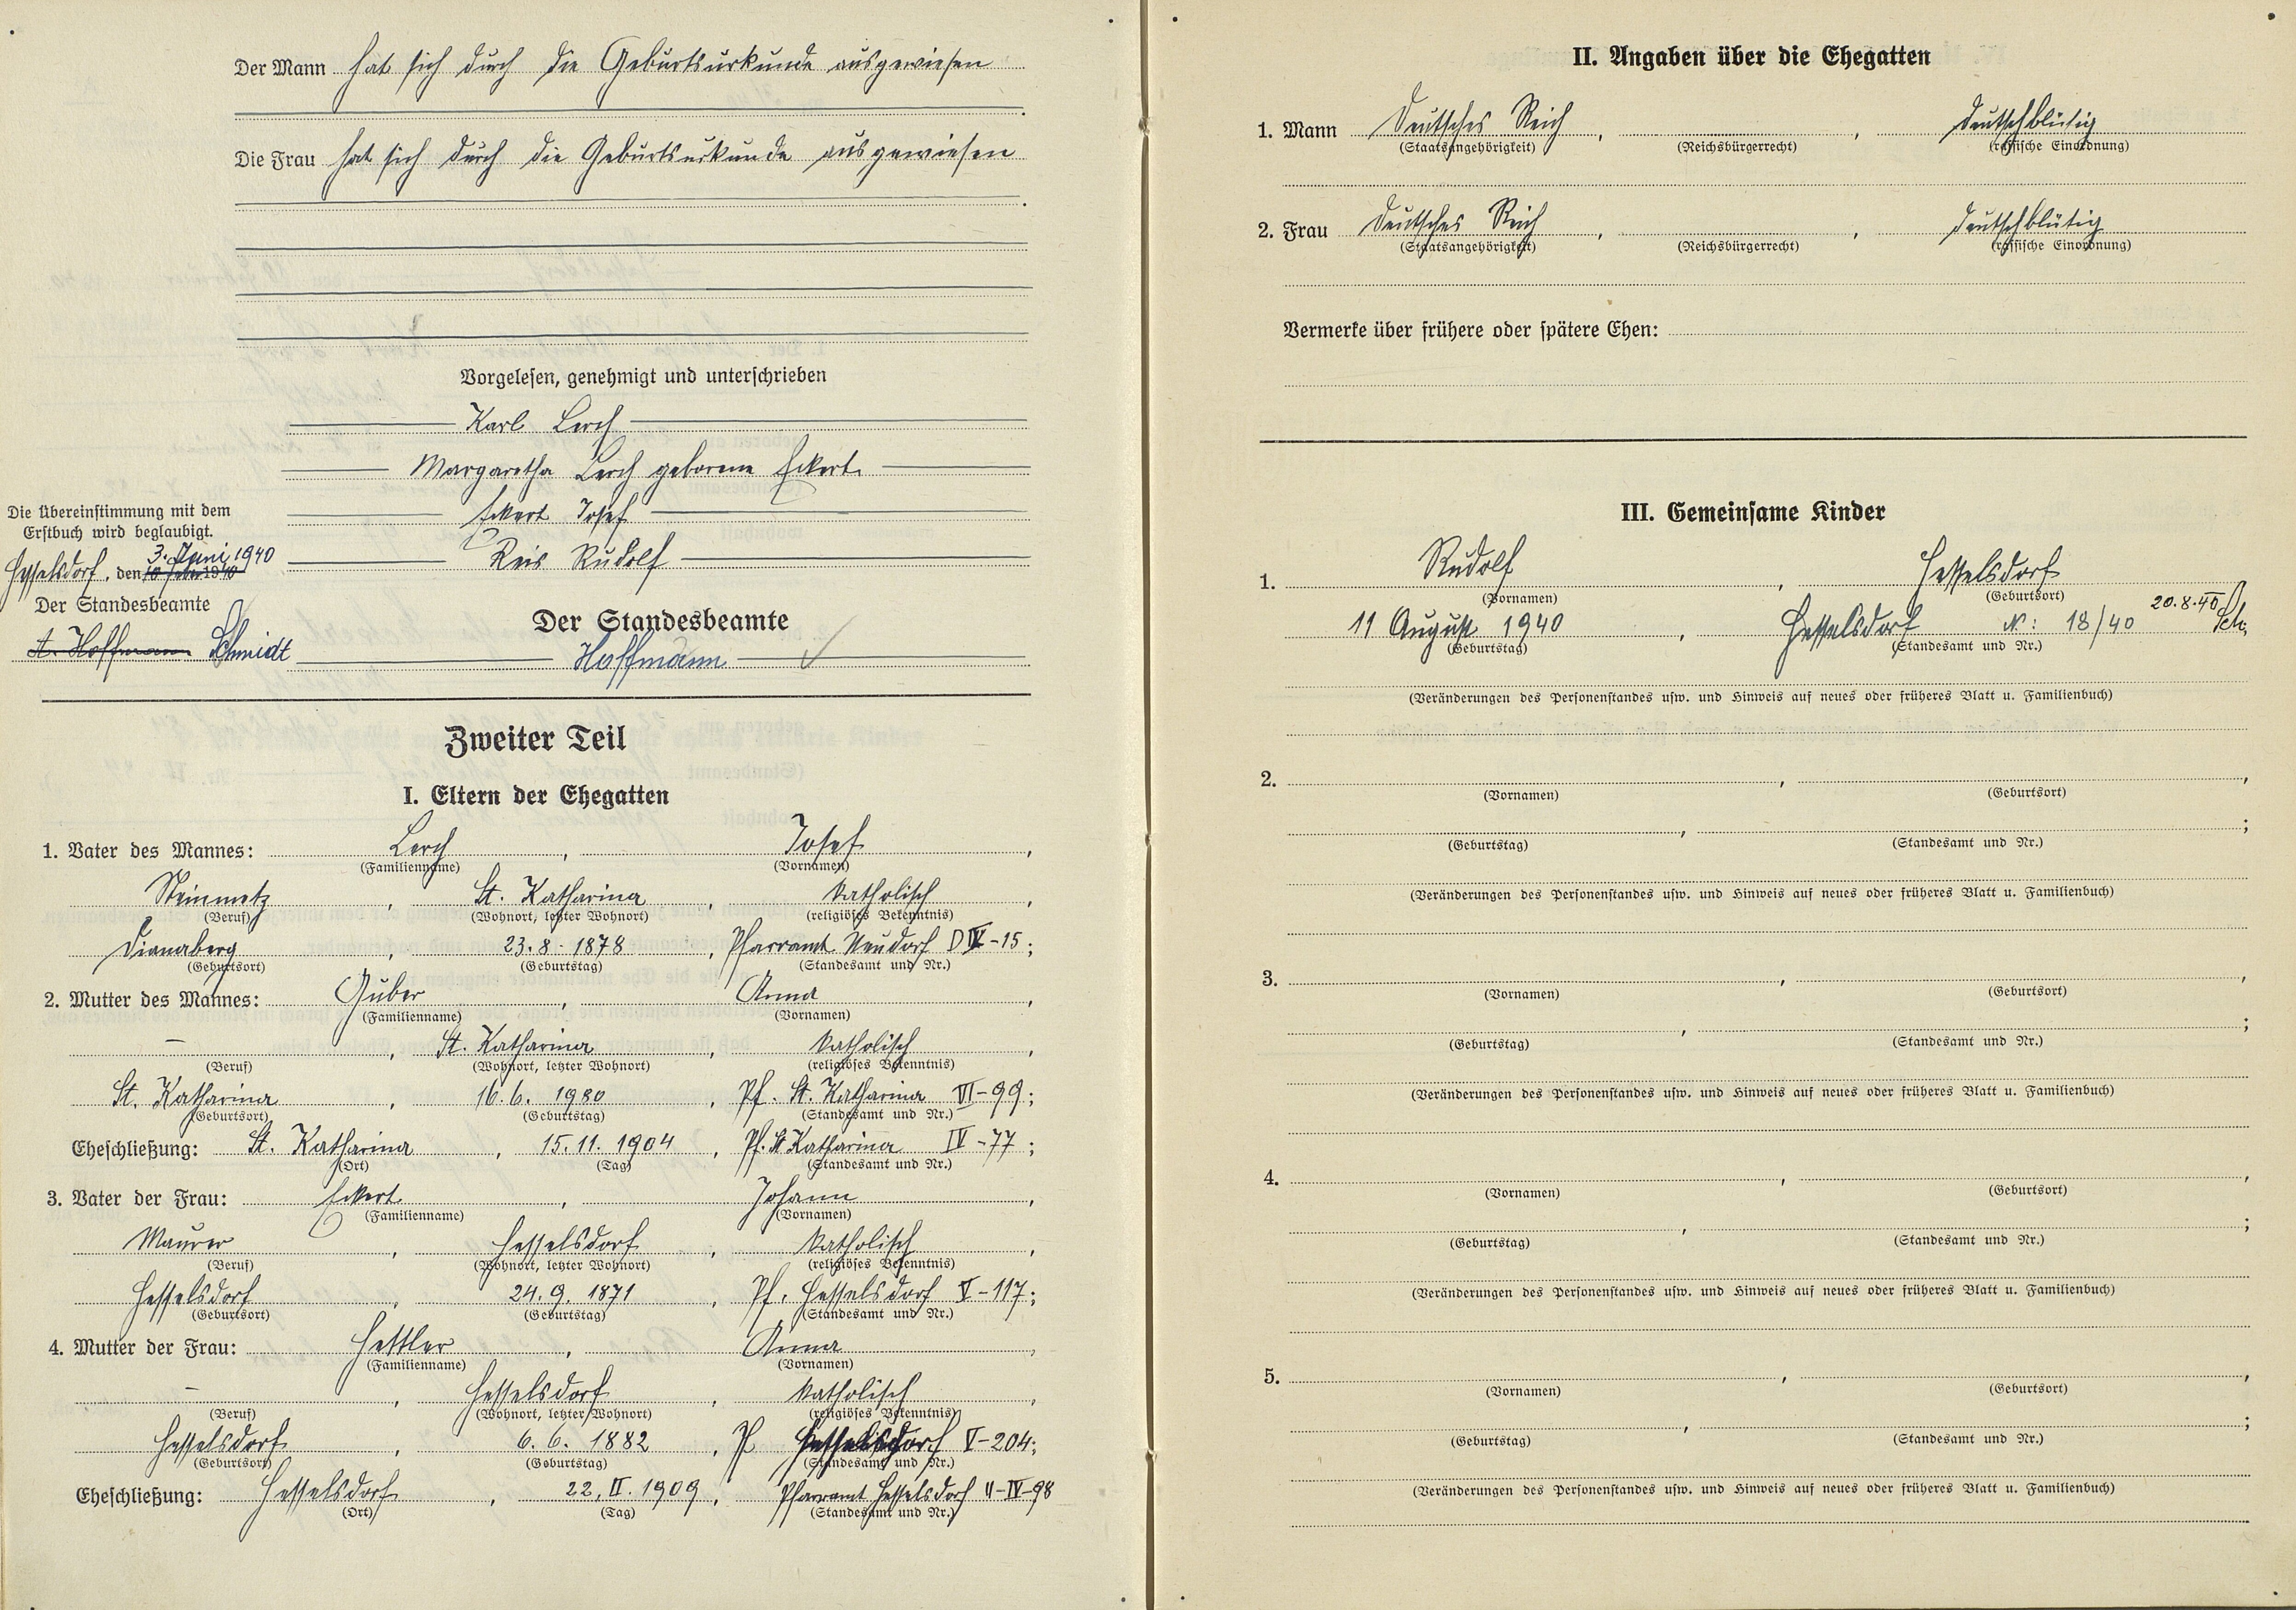 Der Mann hat sich durch die Geburtsurkunde ausgewiesen
Die Frau hat sich durch die Geburtsurkunde ausgewiesen
Vorgelesen, genehmigt und unterschrieben
Karl Lerch
Margaretha Lerch geborene Eckert.
Eckert Josef
Reis Rudolf
Die Übereinstimmung mit dem
Erstbuch wird beglaubigt.
3. Juni 1940
Hesselsdorf, den
Der Standesbeamte
A. Hoffmann Schmidt
Der Standesbeamte
Hoffmann
Zweiter Teil
I. Eltern der Ehegatten
1. Vater des Mannes: Lerch, Josef,
(Familienname) (Vornamen)
Steinmetz, St. Katharina, katholisch,
(Beruf) (Wohnort, letzter Wohnort) (religiöses Bekenntnis)
Dianaberg, 23.8.1878, Pfarramt Neudorf D IV-15;
(Geburtsort) (Geburtstag) (Standesamt und Nr.)
2. Mutter des Mannes: Guber, Anna,
(Familienname) (Vornamen)
–, St. Katharina, katholisch,
(Beruf) (Wohnort, letzter Wohnort) (religiöses Bekenntnis)
St. Katharina, 16.6. 1980, Pf. St. Katharina VI-99;
(Geburtsort) (Geburtstag) (Standesamt und Nr.)
Eheschließung: St. Katharina, 15.11.1904, Pf. St Katharina IV-77;
(Ort) (Tag) (Standesamt und Nr.)
3. Vater der Frau: Eckert, Johann,
(Familienname) (Vornamen)
Maurer, Hesselsdorf, katholisch,
(Beruf) (Wohnort, letzter Wohnort) (religiöses Bekenntnis)
Hesselsdorf, 24.9. 1871, Pf. Hesselsdorf V-117;
(Geburtsort) (Geburtstag) (Standesamt und Nr.)
4. Mutter der Frau: Hettler, Anna,
(Familienname) (Vornamen)
–, Hesselsdorf, katholisch,
(Beruf) (Wohnort, letzter Wohnort) (religiöses Bekenntnis)
Hesselsdorf, 6.6. 1882, Pf Hesselsdorf V-204;
(Geburtsort) (Geburtstag) (Standesamt und Nr.)
Eheschließung: Hesselsdorf, 22.II.1909, Pfarramt Hesselsdorf II-IV-98
(Ort) (Tag) (Standesamt und Nr.)
II. Angaben über die Ehegatten
1. Mann Deutsches Reich, , deutschblütig
(Staatsangehörigkeit) (Reichsbürgerrecht) (rassische Einordnung)
2. Frau Deutsches Reich, , deutschblütig
(Staatsangehörigkeit) (Reichsbürgerrecht) (rassische Einordnung)
Vermerke über frühere oder spätere Ehen:
III. Gemeinsame Kinder
1. Rudolf, Hesselsdorf
(Vornamen) (Geburtsort)
11 August 1940, Hesselsdorf N: 18/40 20.8.40 Sch.
(Geburtstag) (Standesamt und Nr.)
(Veränderungen des Personenstandes usw. und Hinweis auf neues oder früheres Blatt u. Familienbuch)
2. , ,
(Vornamen) (Geburtsort)
, ;
(Geburtstag) (Standesamt und Nr.)
(Veränderungen des Personenstandes usw. und Hinweis auf neues oder früheres Blatt u. Familienbuch)
3. , ,
(Vornamen) (Geburtsort)
, ;
(Geburtstag) (Standesamt und Nr.)
(Veränderungen des Personenstandes usw. und Hinweis auf neues oder früheres Blatt u. Familienbuch)
4. , ,
(Vornamen) (Geburtsort)
, ;
(Geburtstag) (Standesamt und Nr.)
(Veränderungen des Personenstandes usw. und Hinweis auf neues oder früheres Blatt u. Familienbuch)
5. , ,
(Vornamen) (Geburtsort)
, ;
(Geburtstag) (Standesamt und Nr.)
(Veränderungen des Personenstandes usw. und Hinweis auf neues oder früheres Blatt u. Familienbuch)